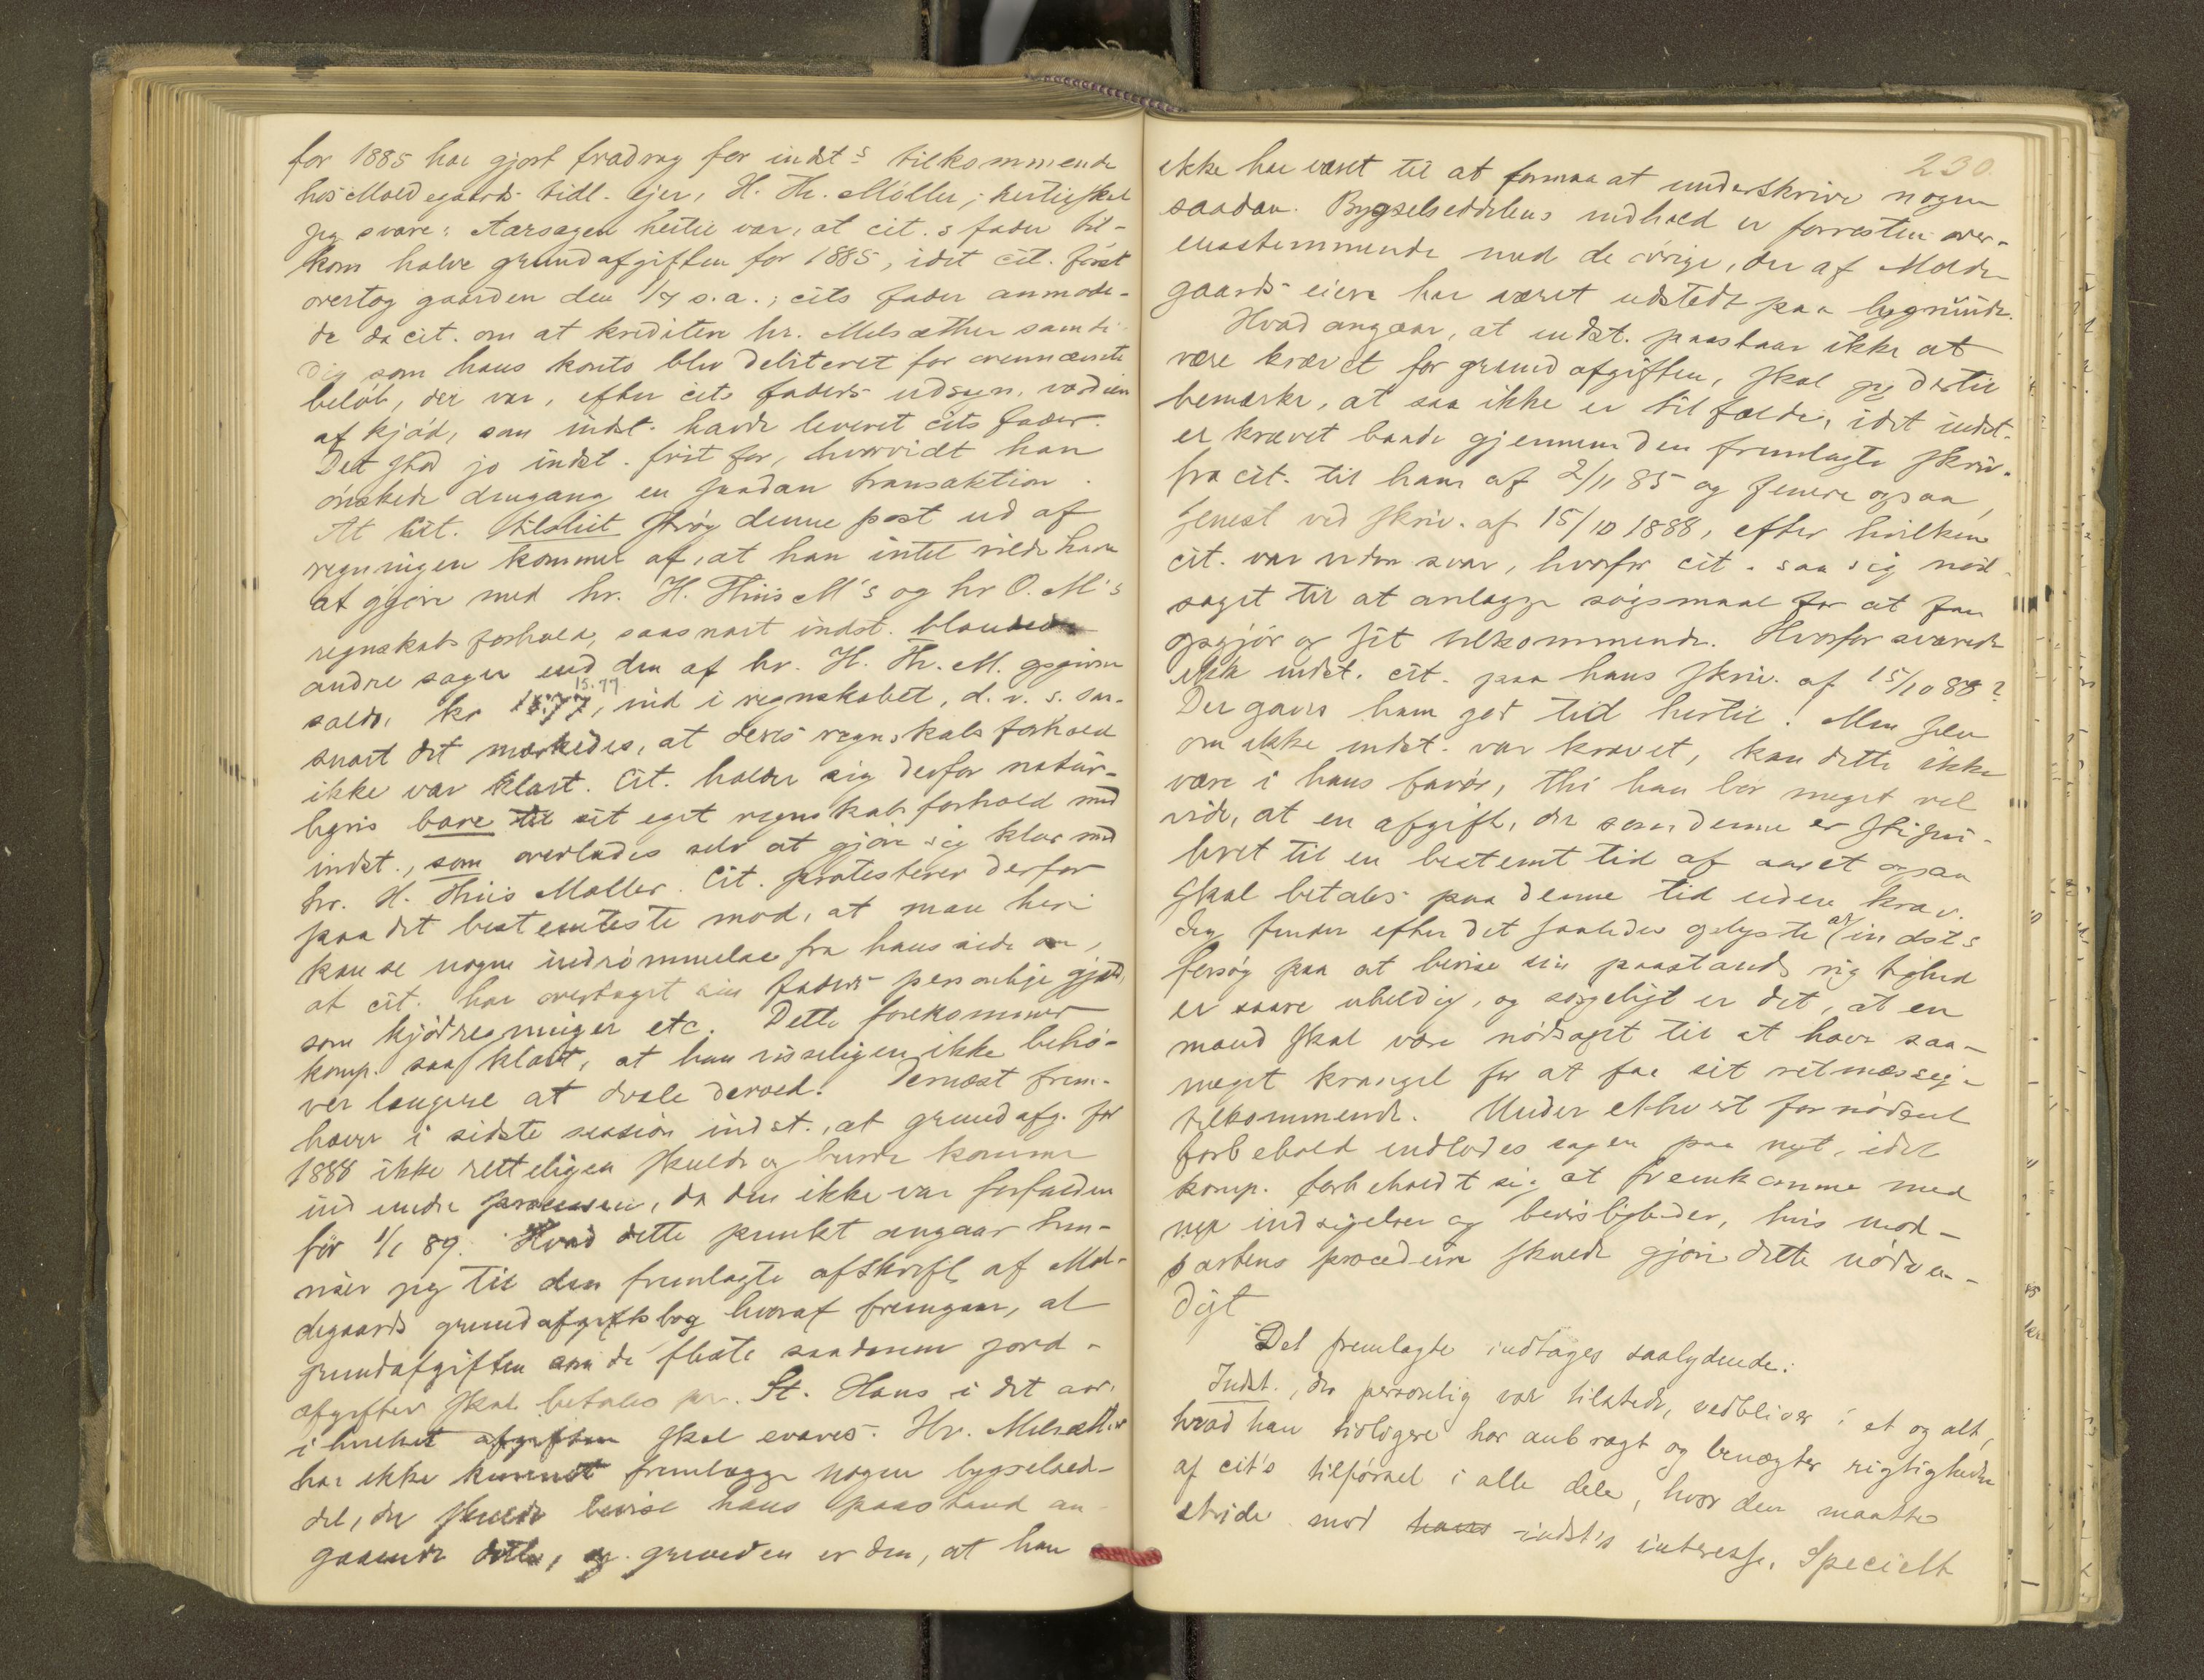 for 1885 har gjort fradrag for indst s tilkommende
hos Moldegaards tidl. ejer, H. Th. Møller; hertil skal
jeg svare: Aarsagen hertil var, at cit.s fader til-
kom halve grundafgiften for 1885, idet cit. først
overtog gaarden den 1/7 s.a.; cits fader anmode-
de da cit. om at kreditere hr. Melsæther samti-
dig som hans konto blev debiteret for ovennævnte
beløb, der var, efter cits faders udsagn, værdien
af kjød, som indst. havde leveret cits fader.
Det stod jo indst. frit for, hvorvidt han
ønskede dengang en saadan transaktion.
At cit. tilslut strøg denne post ud af
regningen kommer af, at han intet vilde have
at gjøre med hr. H. Thiis M's og hr O. M's
regnskabsforhold, saasnart indst. blandede
andre sager end den af hr. H. Th. M. opgivne
saldo, kr 15.77, ind i regnskabet, d. v. s. saa-
snart det mærkedes, at deres regnskabsforhold
ikke var klart. Cit. holder sig derfor natur-
ligvis bare til sit eget regnskabsforhold med
indst., som overlades selv at gjøre sig klar med
hr. H. Thiis Møller. Cit. protesterer derfor
paa det bestemteste mod, at man heri
kan se nogen indrømmelse fra hans side om,
at cit. har overtaget sin faders personlige gjæld,
som kjødregninger etc. Dette forekommer
komp. saa klart, at han visseligen ikke behø-
ver længere at dvæle derved. Dernæst frem-
hæver i sidste session indst., at grundafg. for
1888 ikke retteligen skulde og burde komme
ind under processen, da den ikke var forfalden
før 1/1 89. Hvad dette punkt angaar hen-
viser jeg til den fremlagte afskrift af Mol-
degaards grundafgiftsbog hvoraf fremgaar, at
grundafgiften som de fleste saadanne jord-
afgifter skal betales pr. St. Hans i det aar,
i hvilket afgiften skal svares. Hr. Melsæther
har ikke kunnet fremlægge nogen bygselsed-
del, der skulde bevise hans paastand an-
gaaende dette, og grunden er den, at han
230.
ikke har været til at formaa at underskrive nogen
saadan. Bygselseddelens indhold er forresten over-
ensstemmende med de øvrige, der af Molde-
gaards eiere har været udstedt paa byggrunde.
Hvad angaar, at indst. paastaar ikke at
være krævet for grundafgiften, skal jeg dertil
bemærke, at saa ikke er tilfælde, idet indst.
er krævet baade gjennem den fremlagte skriv.
fra cit. til ham af 2/11 85 og senere ogsaa,
senest ved skriv. af 15/10 1888, efter hvilken
cit. var uden svar, hvorfor cit. saa sig nød-
saget til at anlægge søgsmaal for at faa
opgjør og sit tilkommende. Hvorfor svarede
ikke indst. cit. paa hans skriv. af 15/10 88?
Der gaves ham god tid hertil! Men selv
om ikke indst. var krævet, kan dette ikke
være i hans favør, thi han bør meget vel
vide, at en afgift, der som denne er stipu-
leret til en bestemt tid af aaret ogsaa
skal betales paa denne tid uden krav.
Jeg finder efter det saaledes oplyste at indsts
forsøg paa at bevise sin paastands rigtighed
er saare uheldig, og sørgeligt er det, at en
mand skal være nødsaget til at have saa-
meget krangel for at faa sit retmæssige
tilkommende. Under ethvert fornødent
forbehold indlades sagen paa nyt, idet
komp. forbeholdt sig at fremkomme med
nye indsigelser og bevisligheder, hvis mod-
partens procedure skulde gjøre dette nødven-
digt
Det fremlagte indtages saalydende:
Indst., der personlig var tilstede, vedbliver i et og alt,
hvad han tidligere har anbragt og benægter rigtigheden
af cit's tilførsel i alle dele, hvor den maatte
stride mod hans indst's interesse. Specielt